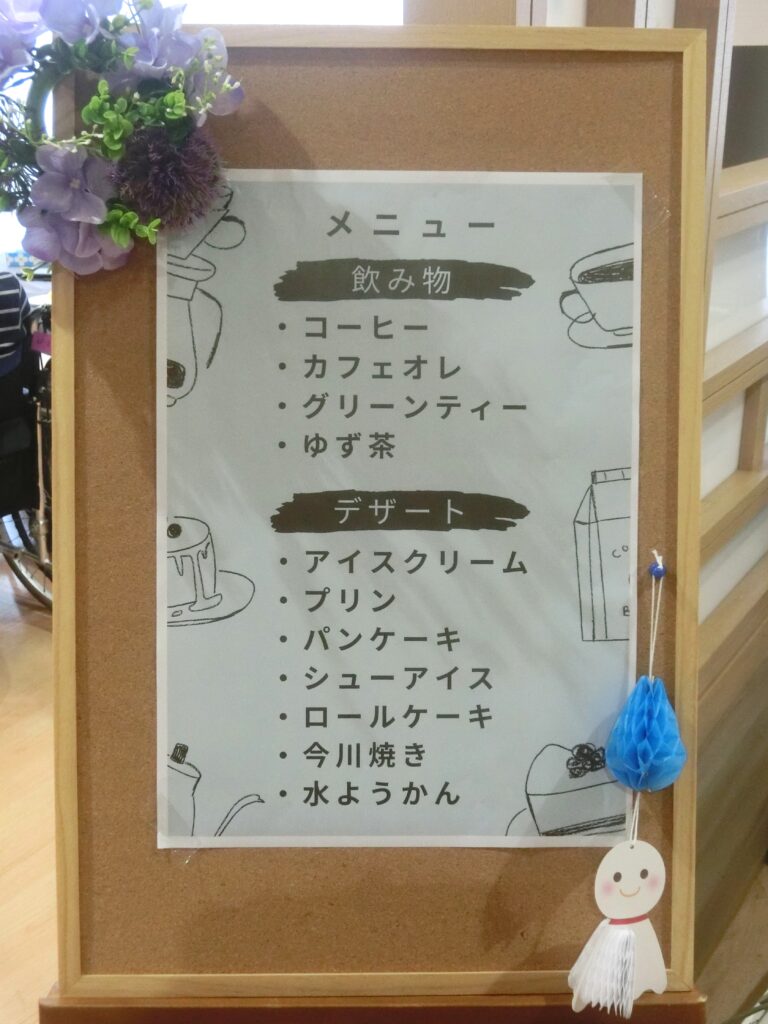 メニュー
飲み物
・コーヒー
・カフェオレ
・グリーンティー
・ゆず茶
デザート
・アイスクリーム
・プリン
・パンケーキ
・シューアイス
・ロールケーキ
・今川焼き
・水ようかん